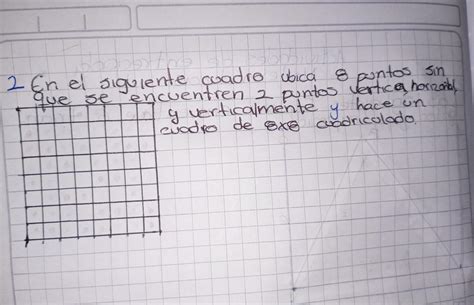 2 En el siguiente cuadro ubica 8 puntos sin
que se encuentren 2 puntos vertica, horizontal
y verticalmente y hace un
cuadro de 8x8 cuadriculado.